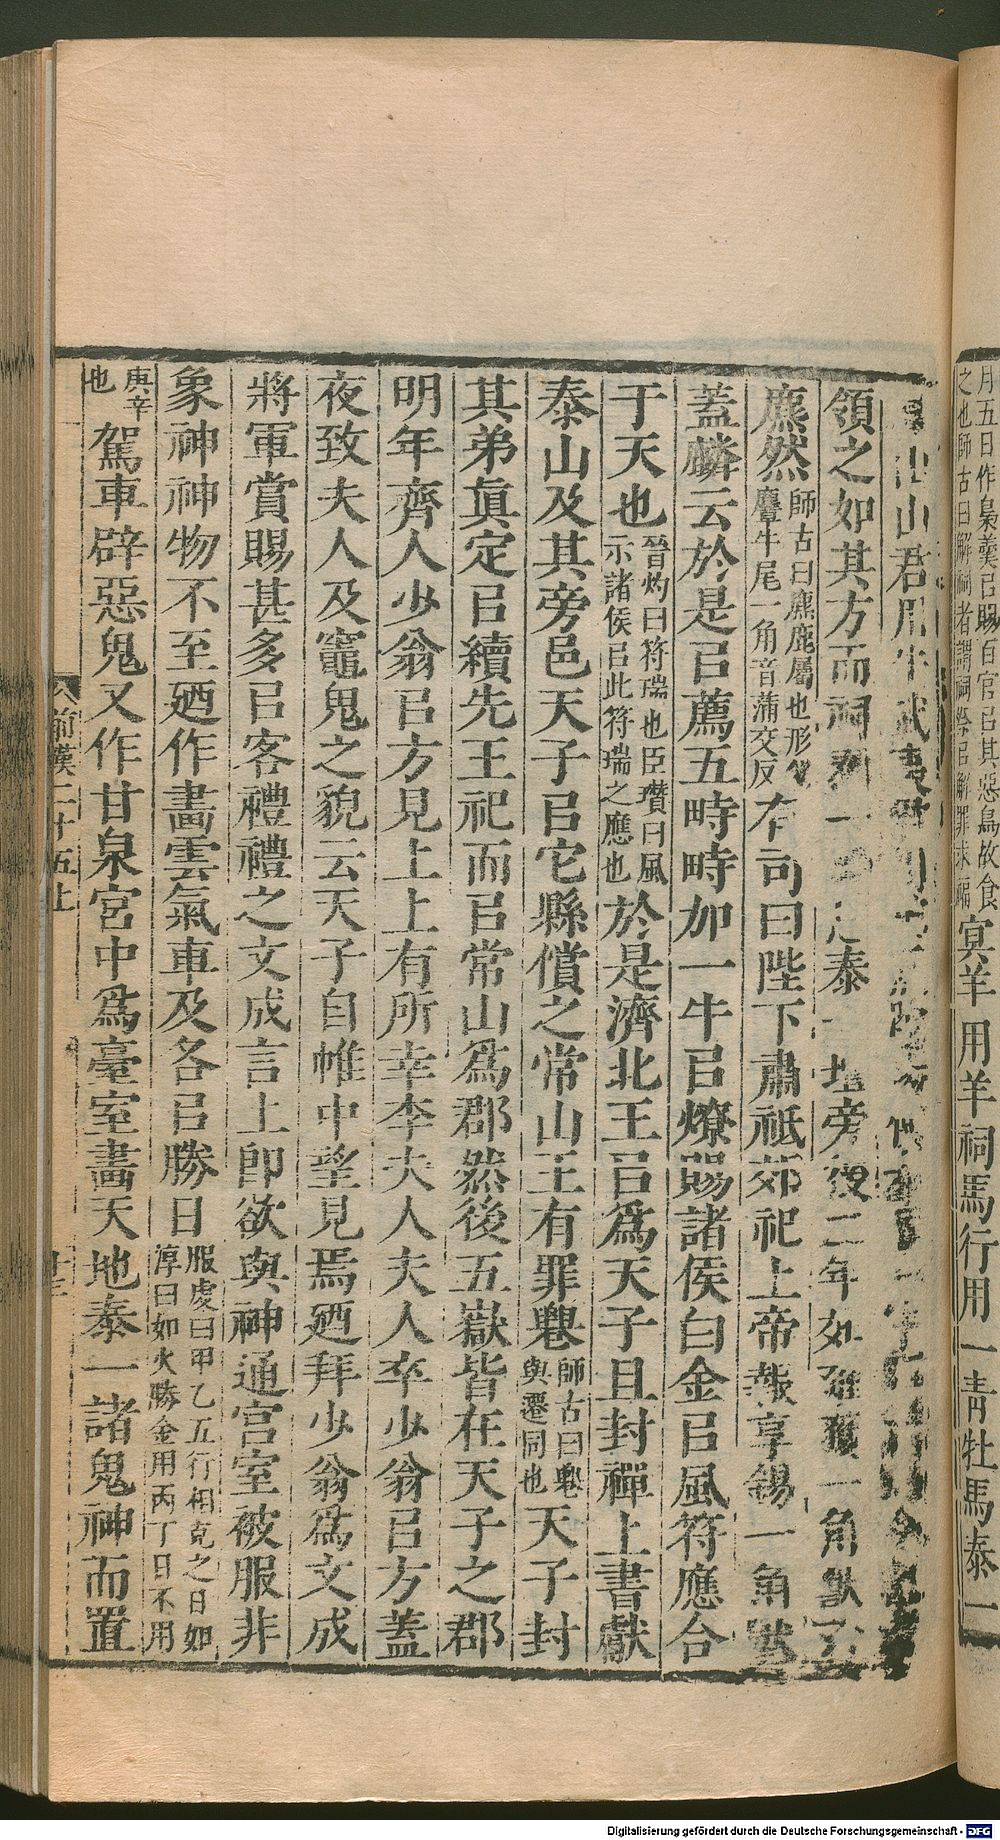 月五日作梟羹㠯賜百官㠯其惡鳥故食
之也師古曰解祠者謂祠祭㠯解罪求福
冥羊用羊祠馬行用一青牡馬泰一
山山君用牛武夷
領之如其方而祠泰一泰一壇旁後二年郊雍獲一角獸若
麃然
師古曰麃鹿屬也形似
麞牛尾一角音蒲交反
有司曰陛下肅祗郊祀上帝報享錫一角獸
蓋麟云於是㠯薦五畤畤加一牛㠯燎賜諸侯白金㠯風符應合
于天也
晉灼曰符瑞也臣瓚曰風
示諸侯㠯此符瑞之應也
於是濟北王㠯爲天子且封禪上書獻
泰山及其旁邑天子㠯它縣償之常山王有罪䙴
師古曰䙴
與遷同也
天子封
其弟眞定㠯續先王祀而㠯常山爲郡然後五嶽皆在天子之郡
明年齊人少翁㠯方見上上有所幸李夫人夫人卒少翁㠯方蓋
夜致夫人及竈鬼之貌云天子自帷中望見焉廼拜少翁爲文成
將軍賞賜甚多㠯客禮禮之文成言上卽欲與神通宮室被服非
象神神物不至廼作畫雲氣車及各㠯勝日
服虔曰甲乙五行相克之日如
淳曰如火勝金用丙丁日不用
庚辛
也
駕車辟惡鬼又作甘泉宮中爲臺室畫天地泰一諸鬼神而置
前漢二十五上
Digitalisierung gefördert durch die Deutsche Forschungsgemeinschaft - DFG